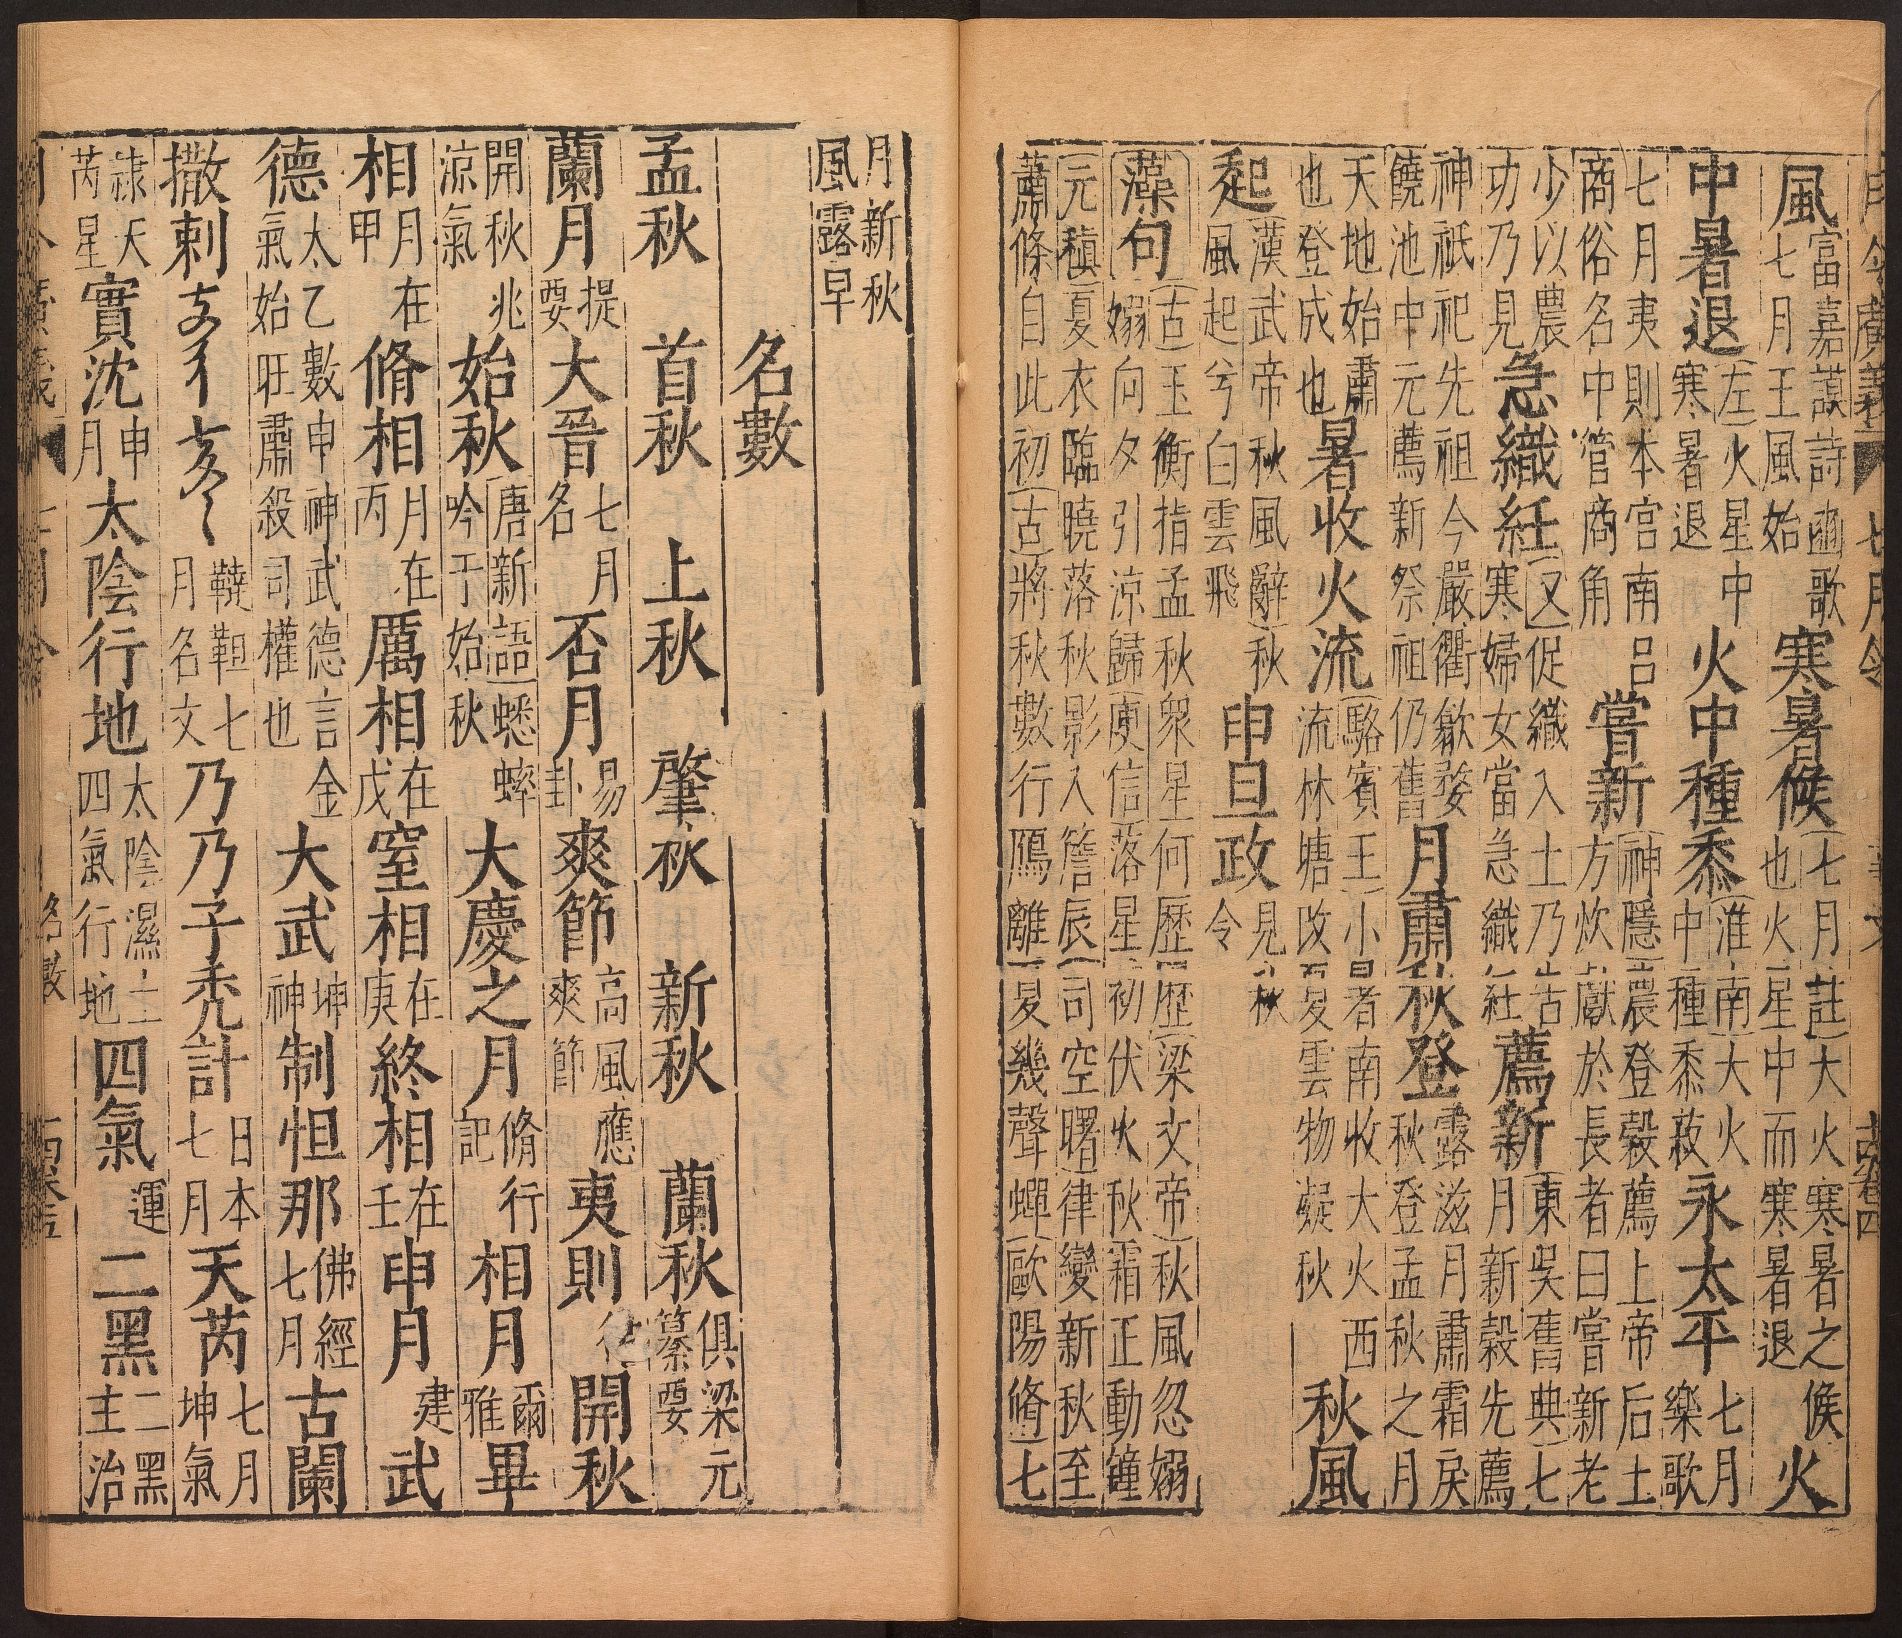 月令廣義 七月令
風富嘉謨詩豳歌七月王風始寒暑候七月註大火寒暑之候也火星中而寒暑退火
中暑退左火星中寒暑退火中種黍淮南大火中種黍菽永太平七月樂歌
七月夷則本宮南呂商俗名中管商角嘗新神隱農登穀薦上帝后土方炊獻於長者曰嘗新老
少以農功乃見急織紝又促織入土乃告寒婦女當急織紝薦新東吳舊典七月新穀先薦
神祇祀先祖今嚴衢歙婺饒池中元薦新祭祖仍舊月肅秋登露滋月肅霜戾秋登孟秋之月
天地始肅也登成也暑收火流駱賓王小暑南收大火西流林塘改夏雲物凝秋秋風
起漢武帝秋風辭秋風起兮白雲飛申旦政見秋令
藻句古玉衡指孟秋衆星何歷歷梁文帝秋風忽嫋嫋向夕引涼歸庾信落星初伏火秋霜正動鐘
元稹夏衣臨曉落秋影入簷辰司空曙律變新秋至蕭條自此初古將秋數行鴈離夏幾聲蟬歐陽脩七
月新秋風露早
名數
孟秋 首秋 上秋 肇秋 新秋 蘭秋俱梁元纂要
蘭月提要大晉七月名否月易卦爽節高風應爽節夷則開秋
開秋兆涼氣始秋唐新語蟋蟀吟于始秋大慶之月脩行記相月爾雅畢
相月在甲脩相月在丙厲相在戊窒相在庚終相在壬申月建武
德太乙數申神武德言金氣始旺肅殺司權也大武坤神制怛那佛經七月古闌
撒剌韃靼七月名文乃乃子禿計日本七月天芮七月坤氣
隸天芮星實沈申月太陰行地太陰濕土四氣行地四氣運二黑二黑主治
名數